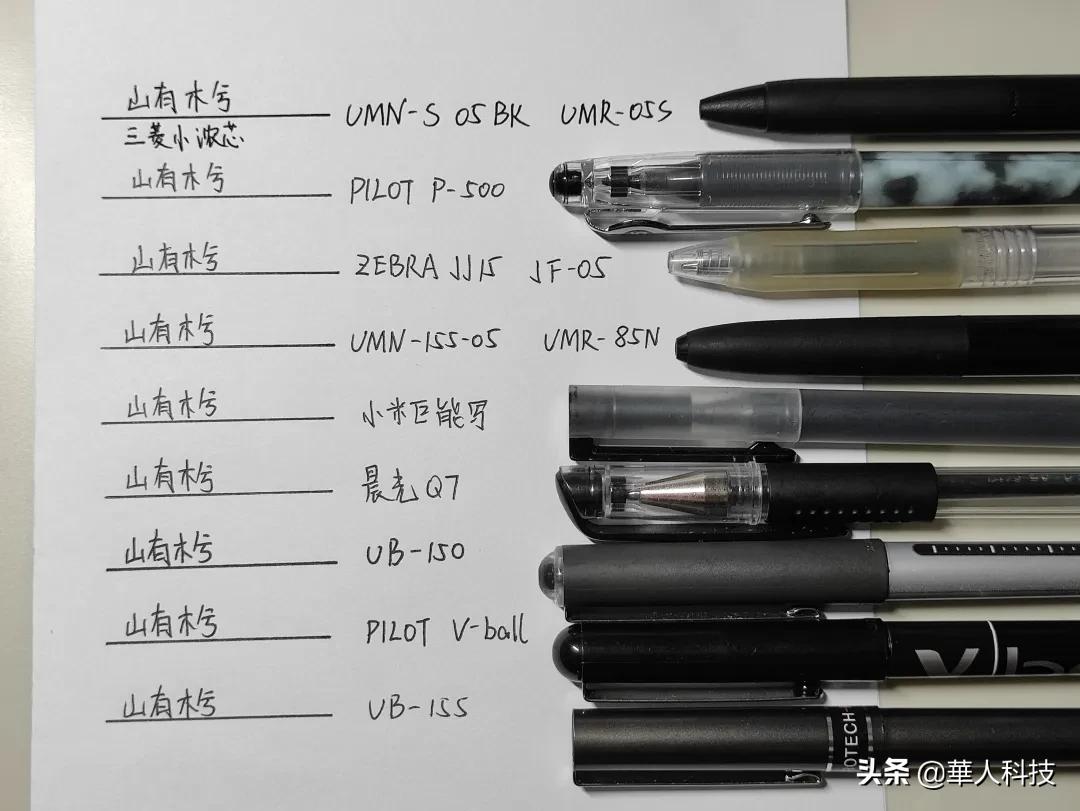 山有木兮 UMN-S 05 BK UMR-05S
三菱小浓芯
山有木兮 PILOT P-500
山有木兮 ZEBRA JJ15 JF-05
山有木兮 UMN-155-05 UMR-85N
山有木兮 小米巨能写
山有木兮 晨光 Q7
山有木兮 UB-150
山有木兮 PILOT V-ball
山有木兮 UB-155
头条 @華人科技